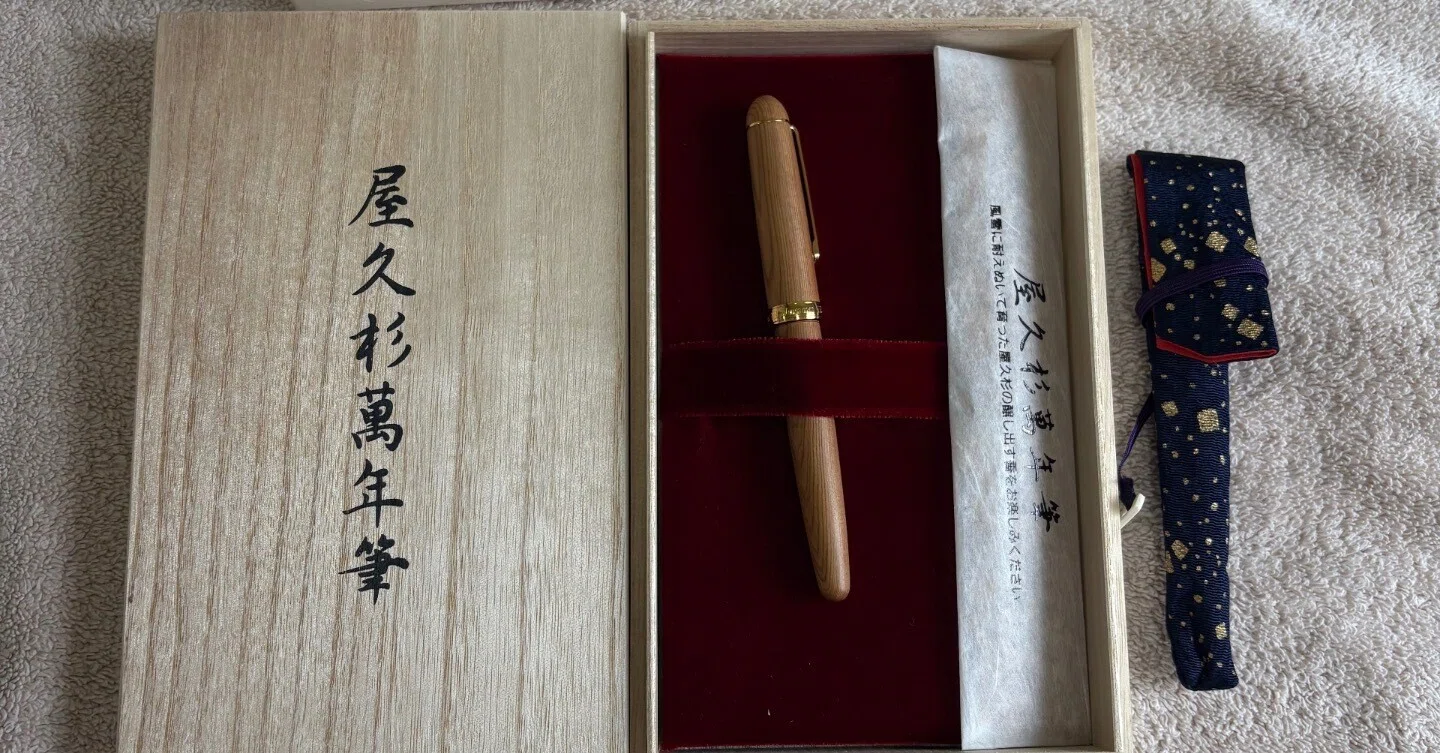 屋久杉萬年筆
屋久杉萬年筆
風雪に耐えぬいて育った屋久杉の醸し出す香をお楽しみください